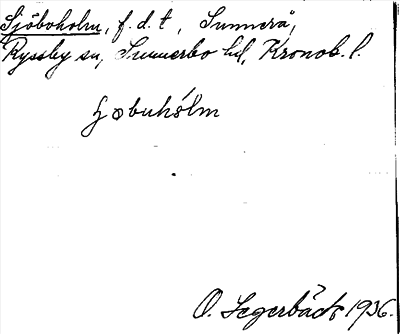 Sjöboholm, f.d.t, Sunnerå,
Ryssby sn, Sunnerbo hd, Kronob. l.
ʃobuhólm
O. Segerbäck 1936.